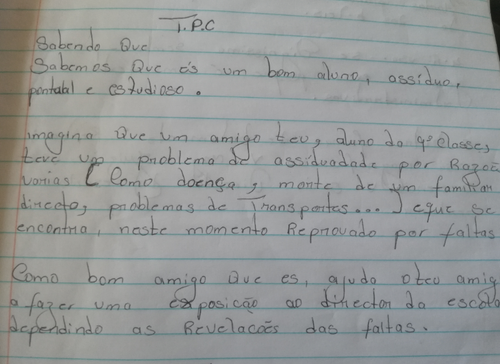 T.P.C
Sabendo Que
Sabemos Que és um bom aluno, assíduo,
pontatal e estudioso.
imagina Que um amigo teu, aluno da 9ª classe,
teve um problema de assiduadade por Razoẽ
varias ( Como doença, monte de um familiar
directo, problemas de Transportes... ) eque se
encontra, neste momento Reprovado por faltas
Como bom amigo Que es, ajuda oteu amig
a fazer uma exposição ao director da escola
dependindo as Revelacões das faltas.